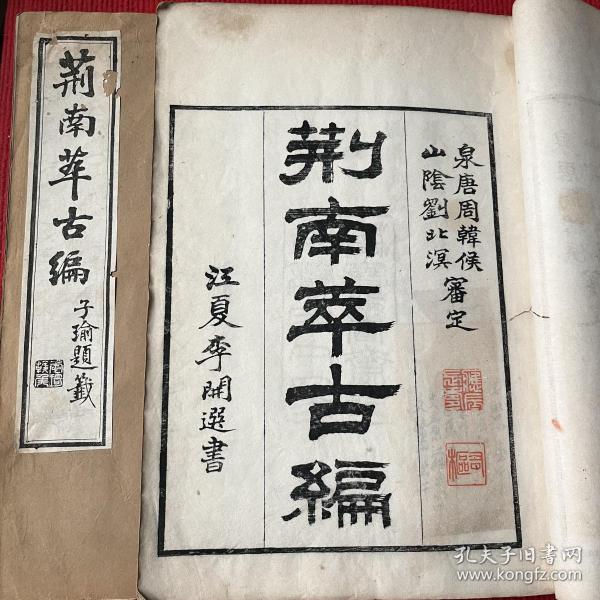 荆南萃古編
子瑜題籤
泉唐周韓侯
山陰劉北溟
審定
荆南萃古編
江夏李開選書
孔夫子旧书网
www.kongfz.com